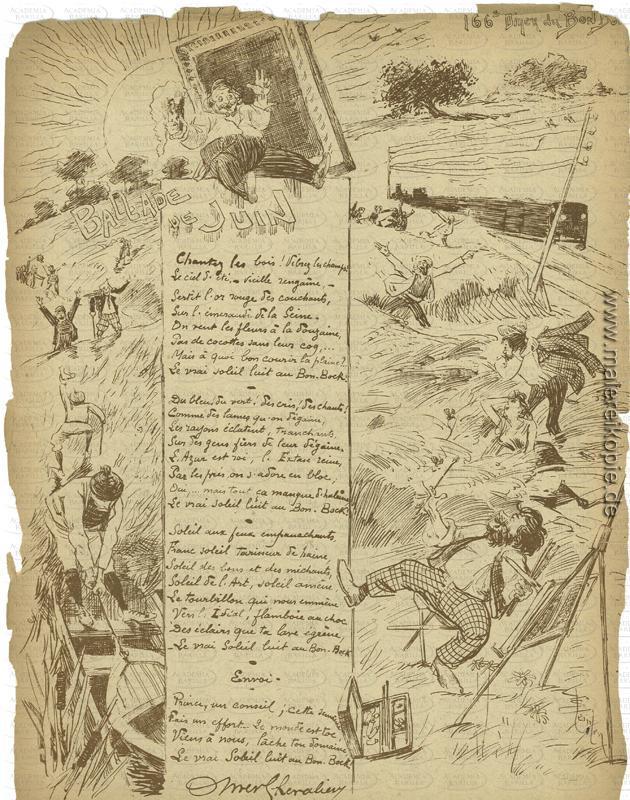 166e Diner du Bon Bo
BALLADE
DE JUIN
Chantez les bois ! Vibrez les champs
Le ciel d'été, - Vieille rengaine, -
Sertit l'or rouge des couchants,
Sur l'émeraude de la Seine.
On vend les fleurs à la douzaine,
Pas de cocottes sans leur coq...
Mais à quoi bon courir la plaine ?
Le vrai soleil luit au Bon-Bock.
Du bleu, du vert ! des cris, des chants !
Comme des lames qu'on dégaine,
Les rayons éclatent, tranchants,
Sur des gens fiers de leur dégaine.
L'Azur est roi, l'Extase reine,
Par les prés on s'adore en bloc,
Oui,... mais tout ça manque d'haleine
Le vrai soleil luit au Bon-Bock !
Soleil aux feux empanachants,
Franc soleil tarisseur de haine
Soleil des bons et des méchants,
Soleil de l'Art, soleil amène
Le tourbillon qui nous emmène
Vers l'Idéal, flamboie au choc
Des éclairs que ta lave égrène,
Le vrai Soleil luit au Bon-Bock
Envoi -
Prince, un conseil ; cette
Fais un effort... Le monde est toc
Viens à nous, lâche ton domaine
Le vrai Soleil luit au Bon-Bock
Chevalier
www.malereikopie.de
ACADEMIA BARILLA